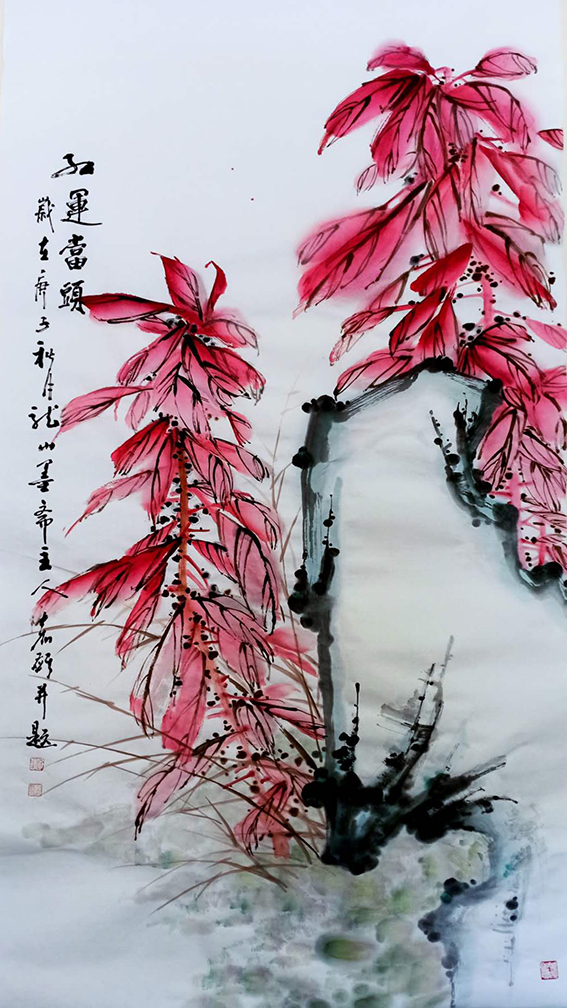 紅運當頭
歲在庚子秋月龍山墨齋主人 並題